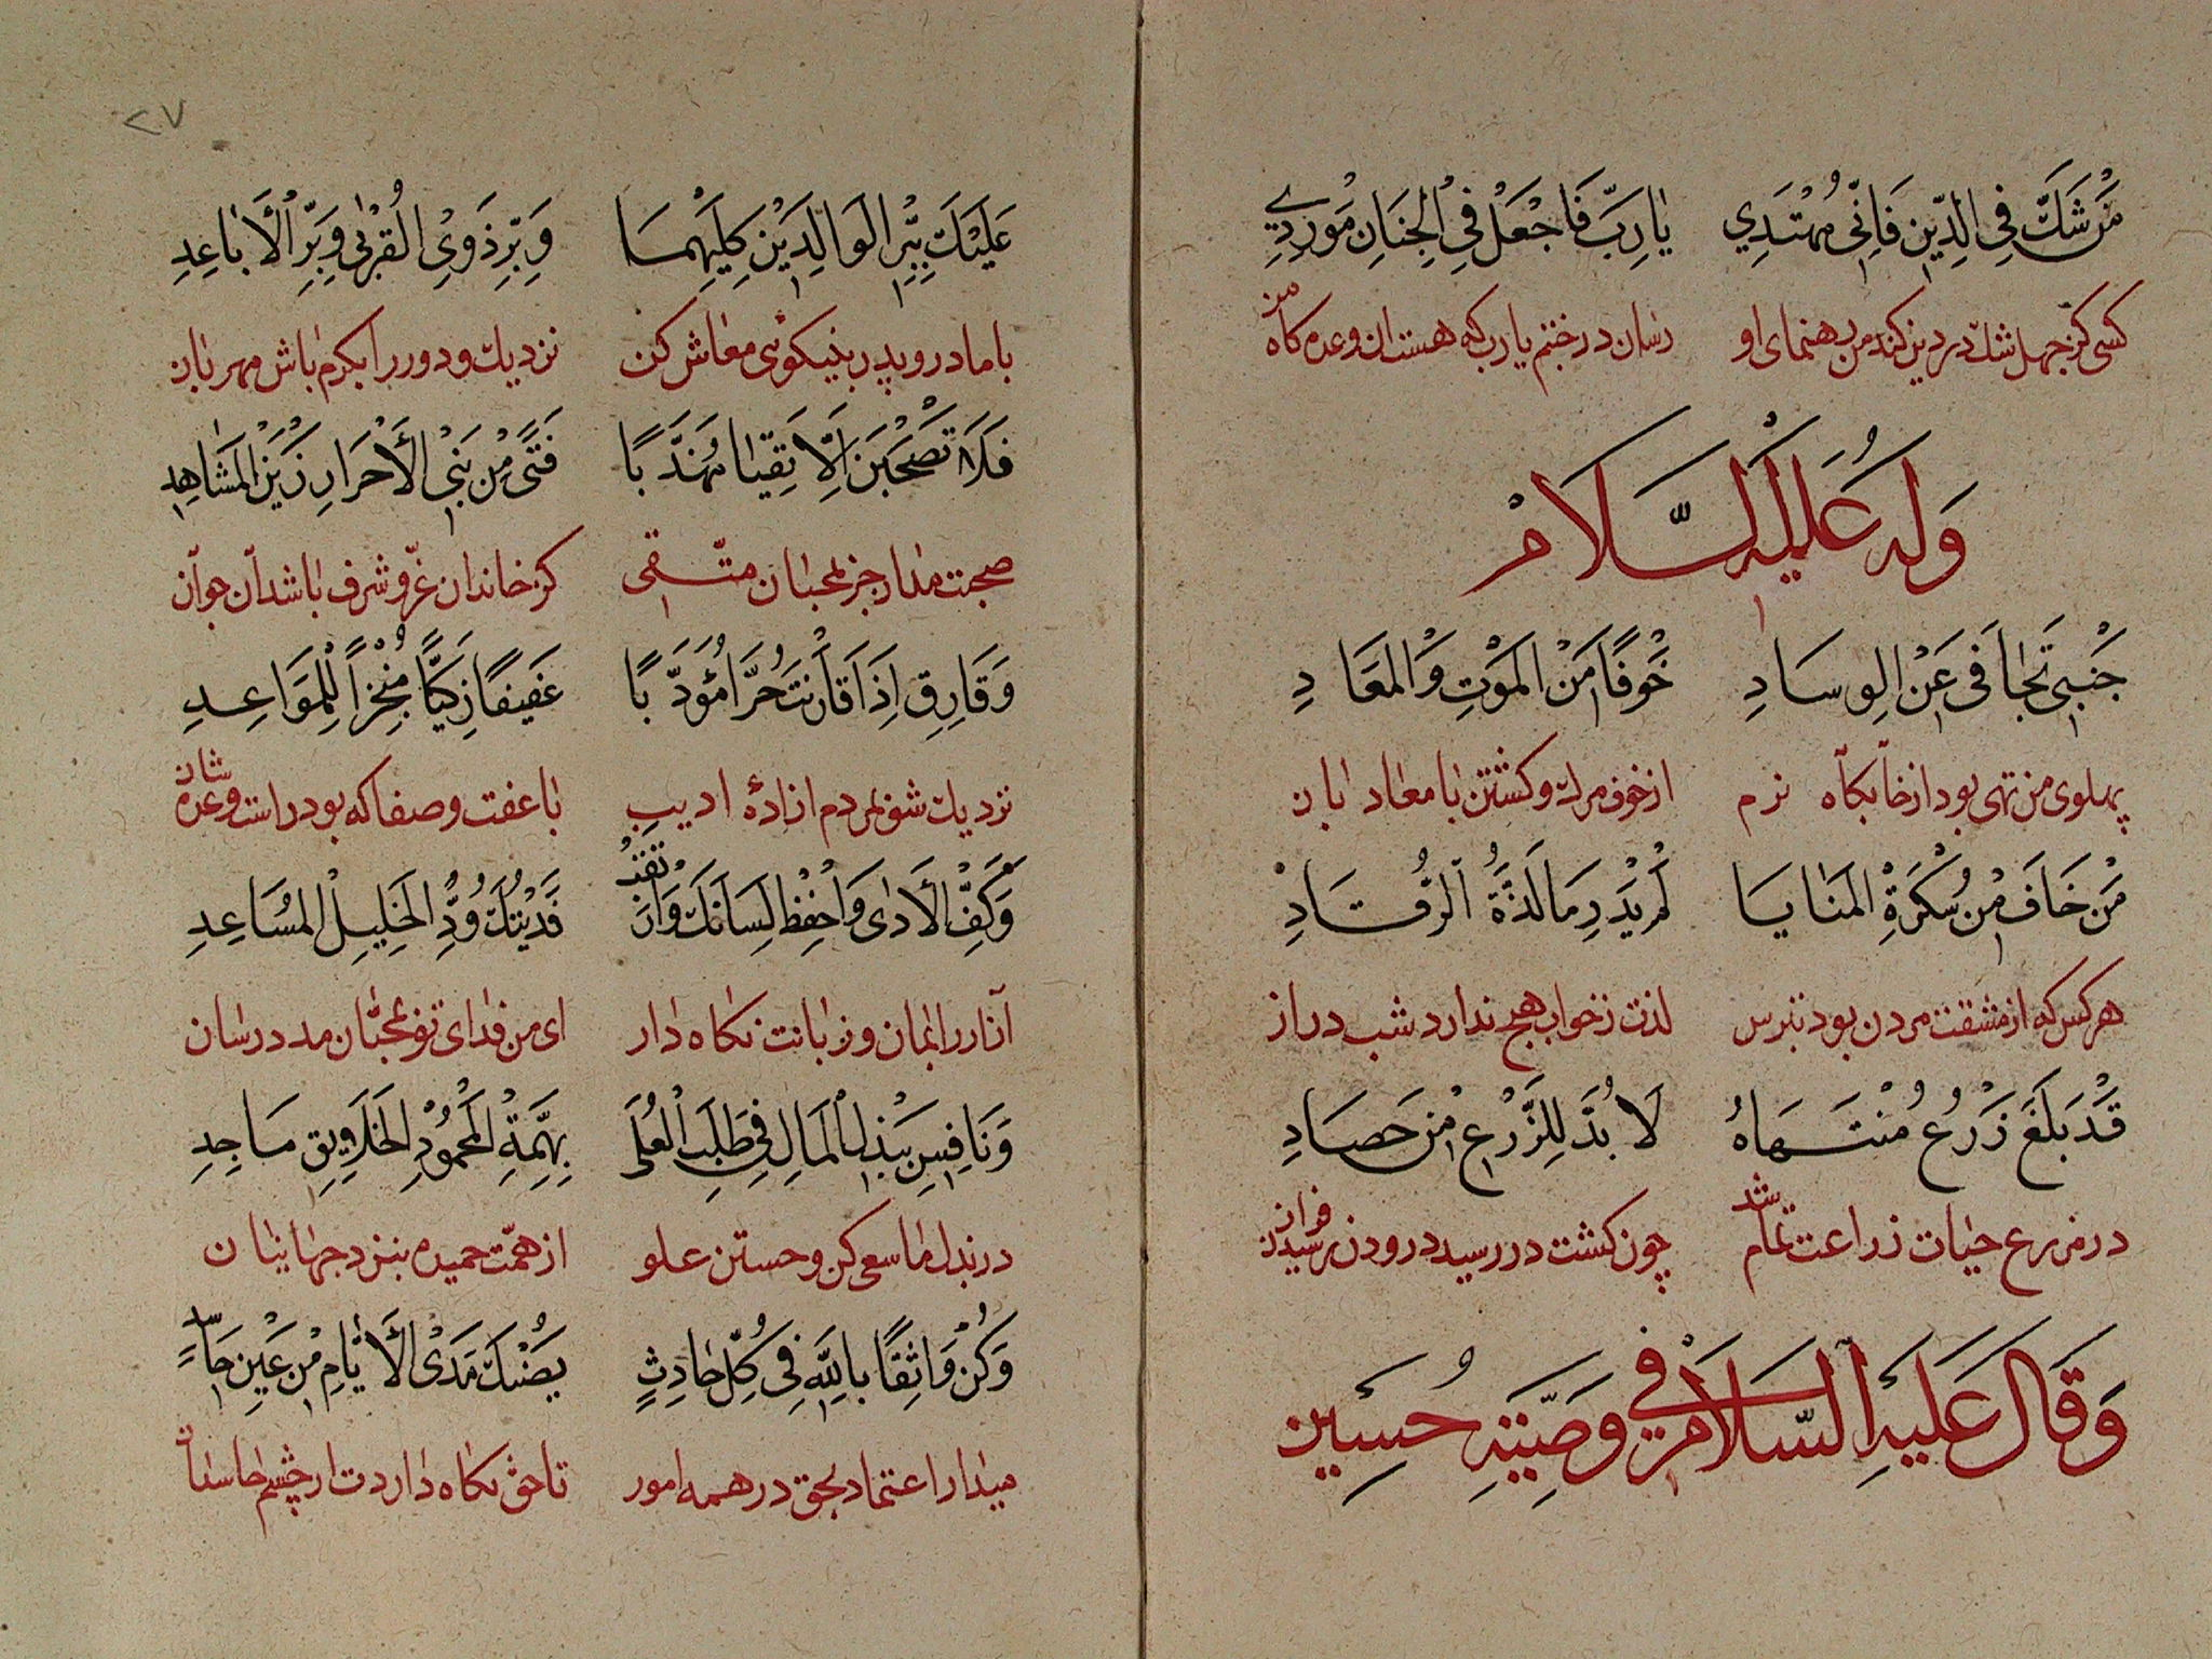 مَنْ شَكَّ فِي الدِّينِ فَاِنِّي مُهْتَدِي يٰا رَبِّ فَاجْعَلْ فِي الْجِنَانِ مَوْرِدِي
كسى كز جهل شك در دين كند من رهنماى او رسان در جنتم يا رب كه هست آن وعده كاه من
وَلَهُ عَلَيْهِ السَّلَامْ
جَنْبِي تَجٰافَى عَنِ الْوِسَادِ خَوْفًا مِنَ الْمَوْتِ وَالْمَعَادِ
پهلوى من تهى بود از خابكاه نرم از خوف مرك و كشتن با معاد ابان
مَنْ خَافَ مِنْ سَكْرَةِ الْمَنٰايَا لَمْ يَدْرِ مَا لَذَّةُ الرُّقَادِ
هر كس كه از مشقت مردن بود بترس لذت ز خواب هيچ ندارد شب دراز
قَدْ بَلَغَ زَرْعُ مُنْتَهَاهُ لَا بُدَّ لِلزَّرْعِ مِنْ حَصَادِ
در مزرع حيات زراعت تمام شد چون كشت در رسيد درودن فراز رسيدن
وَقَالَ عَلَيْهِ السَّلَامْ فِي وَصِيَّتِهِ حُسَيْن
٢٧
عَلَيْكَ بِبِرِّ الْوَالِدَيْنِ كِلَيْهِمَا وَبِرِّ ذَوِي الْقُرْبٰى وَبِرِّ الْأَبٰاعِدِ
با مادر و پدر بنيكوئى معاش كن نزديك و دور را بكرم باش مهربان
فَلَا تَصْحَبَنْ اِلَّا تَقِيٰا مُهَذَّبًا فَتًى مِنْ بَنِي الْأَحْرَارِ زَيْنَ الْمَشَاهِدِ
صحبت مدار جز بمحبان متّقى كز خاندان عزّ و شرف باشد آن جوان
وَقَارِقِ اِذَا قَارَنْتَ حُرًّا مُؤَدَّبًا عَفِيفًا زَكِيًّا مُنْجِزًا لِلْمَوَاعِدِ
نزديك شو بمردم ازادۀ اديب با عفت و صفا كه بود راست وعده شان
وَكُفَّ الْأَذٰى وَاحْفِظْ لِسَانَكَ وَاتَّقِدْ فَدَيْتُكَ وُدِّ الْخَلِيلِ الْمُسَاعِدِ
آزار را بمان و زبانت نكاه دار اى من فداى تو بمحبّان مدد رسان
وَنَافِسْ بِبَذْلِ الْمَالِ فِي طَلَبِ الْعُلَى بِهِمَّةِ مَحْمُودِ الْخَلَايِقِ مَاجِدِ
در بذل ما سعى كن و جستن علو از همّت حميده بنزد جهانيان
وَكُنْ وَاثِقًا بِاللّٰهِ فِي كُلِّ حَادِثٍ يَصُنْكَ مَدَى الْأَيّٰامِ مِنْ عَيْنِ حَاسِدٍ
ميدار اعتماد بحق در همه امور تا حق نكاه دارد ت از چشم حاسدان